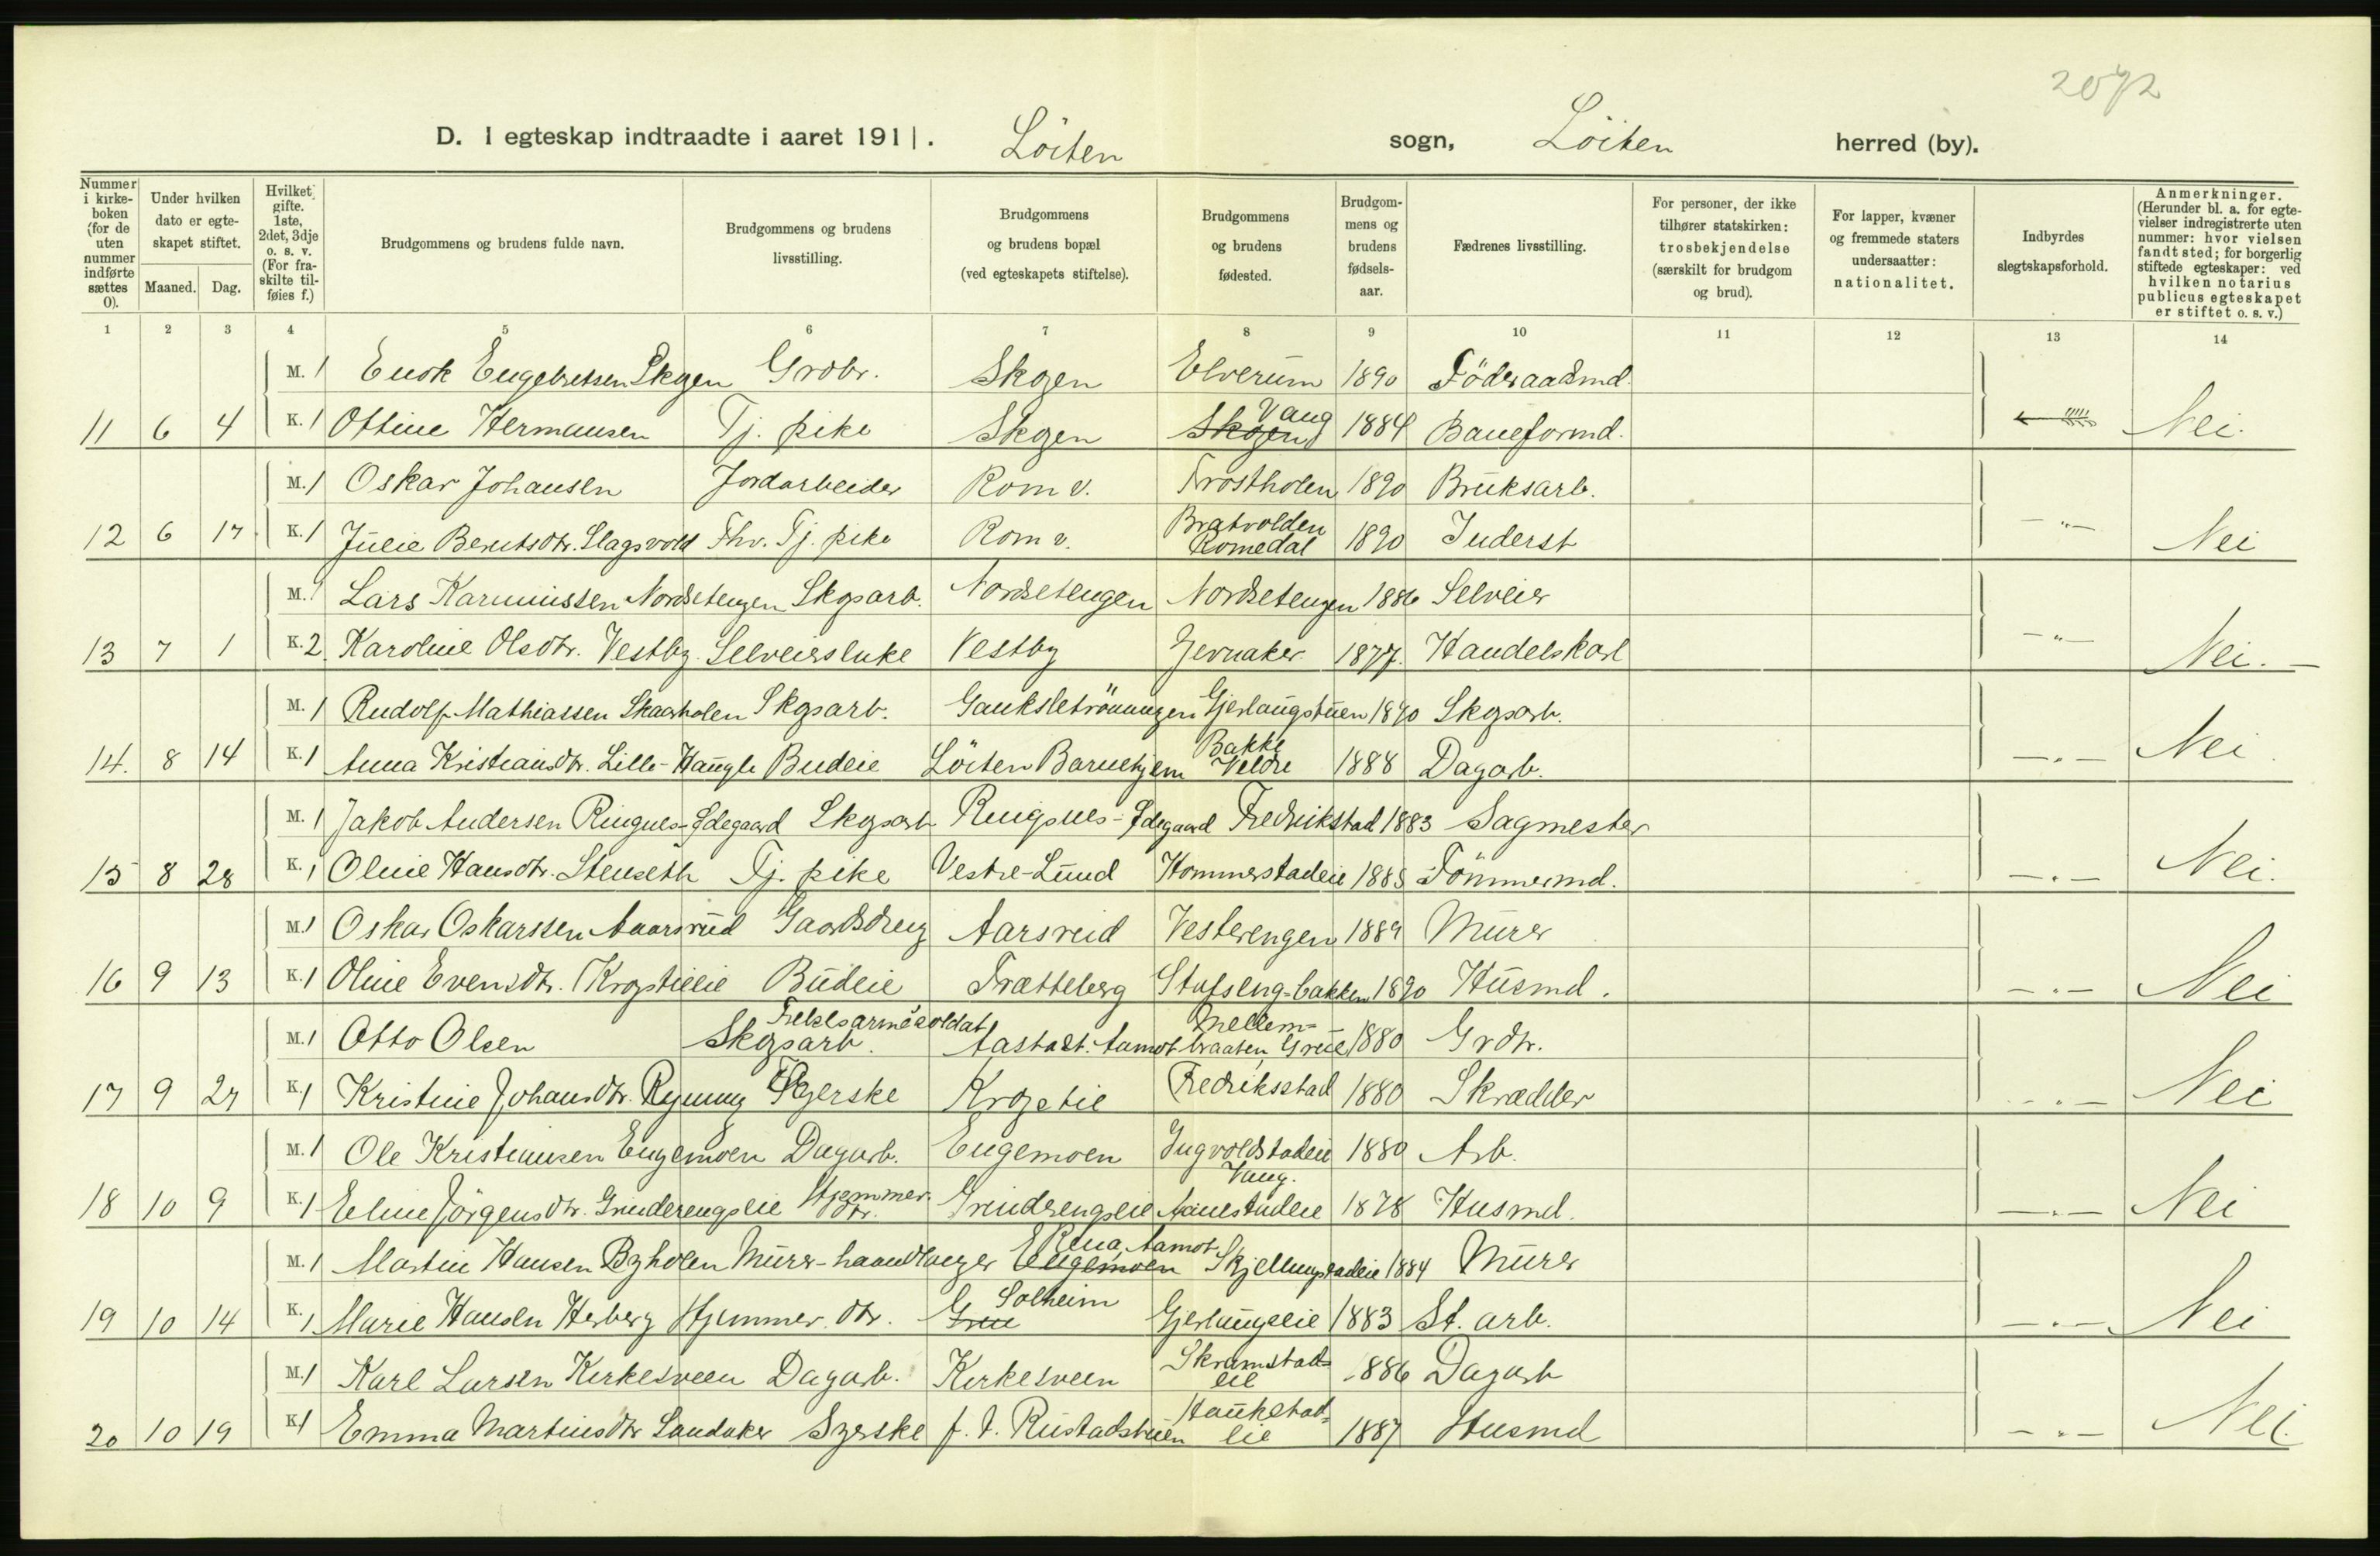 2072
D. I egteskap indtraadte i aaret 1911. Löiten sogn, Löiten herred (by).
Nummer i kirkeboken (for de uten nummer indførte sættes 0).
Under hvilken dato er egteskapet stiftet.
Maaned. Dag.
Hvilket gifte. 1ste, 2det, 3dje o. s. v. (For fraskilte tilføies f.)
Brudgommens og brudens fulde navn.
Brudgommens og brudens livsstilling.
Brudgommens og brudens bopæl (ved egteskapets stiftelse).
Brudgommens og brudens fødested.
Brudgommens og brudens fødselsaar.
Fædrenes livsstilling.
For personer, der ikke tilhører statskirken: trosbekjendelse (særskilt for brudgom og brud).
For lapper, kvæner og fremmede staters undersaatter: nationalitet.
Indbyrdes slegtskapsforhold.
Anmerkninger. (Herunder bl. a. for egtevielser indregistrerte uten nummer: hvor vielsen fandt sted; for borgerlig stiftede egteskaper: ved hvilken notarius publicus egteskapet er stiftet o. s. v.)
1 2 3 4 5 6 7 8 9 10 11 12 13 14
M. 1 Enok Engebretsen Skogen Grdbr. Skogen Elverum 1890 Föderaadsmd.
11 6 4 K. 1 Ottine Hermansen Tj. pike Skogen Skogen Vang 1884 Baneformd. Nei.
M. 1 Oskar Johansen Jordarbeider Rom v. Frostholen 1890 Bruksarb.
12 6 17 K. 1 Julie Berntsdtr. Slagsvold Fhv. Tj. pike Rom v. Bratvolden Romedal 1890 Inderst -"- Nei
M. 1 Lars Karinussen Nordsetengen Skogsarb. Nordsetengen Nordsetengen 1886 Selveier
13 7 1 K. 2 Karoline Olsdtr. Vestby Selveiersluke Vestby Jevnaker 1877. Handelskarl -"- Nei. -
M. 1 Rudolf Mathiassen Skaarholen Skogsarb. Gauksletrönningen Gjerlaugstuen 1890 Skogsarb.
14. 8 14 K. 1 Anna Kristiansdtr. Lille-Haugle Budeie Löiten Barnehjem Bakke Veldre 1888 Dagarb. -"- Nei.
M. 1 Jakob Andersen Ringnes-Ødegaard Skogsarb Ringnes-Ødegaard Fredrikstad 1883 Sagmester
15 8 28 K. 1 Oline Hansdtr. Stenseth Tj. pike Vestre-Lund Hommerstadeie 1885 Tömmermd. -"- Nei.
M. 1 Oskar Oskarssen Aaarsrud Gaardsdreng Aarsrud Vesterengen 1889 Murer
16 9 13 K. 1 Oline Evensdtr. Krogstieie Budeie Frætteberg Stufseng-bakken 1890 Husmd. -"- Nei
M. 1 Otto Olsen Frelsesarmésoldat Skogsarb. Aastast. Aamot Mellem-braaten, Grue 1880 Grdbr.
17 9 27 K. 1 Kristine Johansdtr. Rynning Syerske Krogstie Fredriksstad 1880 Skrædder -"- Nei
M. 1 Ole Kristiansen Engemoen Dagarb. Engemoen Ingvoldstadeie 1880 Arb.
18 10 9 K. 1 Eline Jörgensdtr. Grinderengseie Hjemmev. dtr. Grinderengseie Vang. Aanestadeie 1878 Husmd. -"- Nei
M. 1 Martin Hansen Byholen Murer-haandlanger Engemoen Rena, Aamot. Skjellungstadeie 1884 Murer
19 10 14 K. 1 Marie Hansen Herberg Hjemmev. dtr. Grue Solheim Gjerlaugseie 1883 St. arb. -"- Nei
M. 1 Karl Larsen Kirkesveen Dagarb. Kirkesveen Skramstadeie 1886 Dagarb
20 10 19 K. 1 Emma Martinsdtr Landaker Syerske f. t. Rustadstuen Haukstadeie 1887 Husmd -"- Nei.